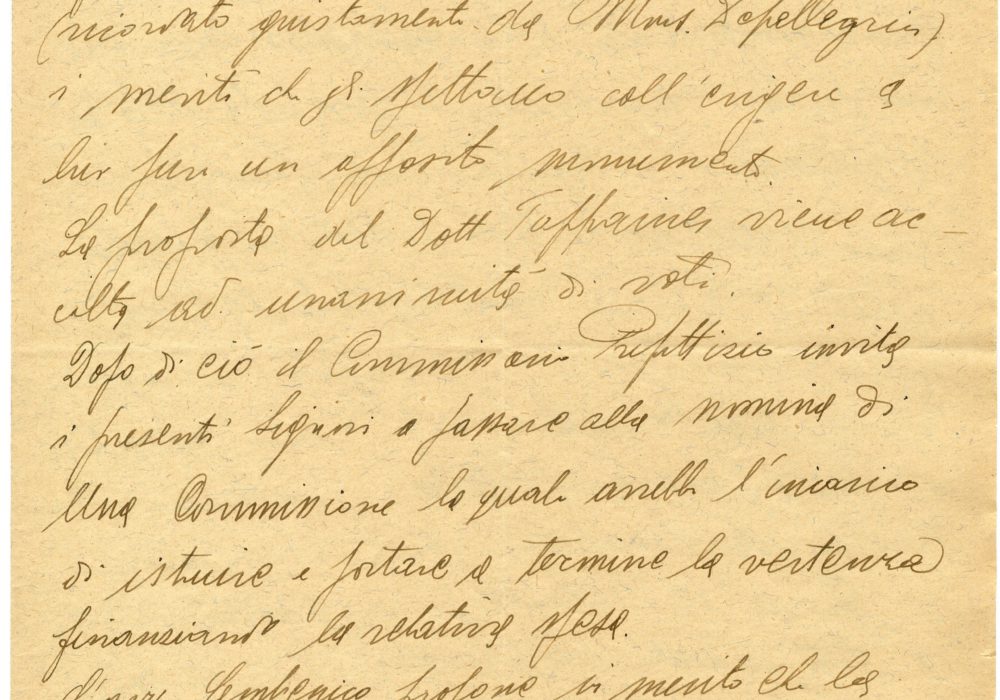 (ricordato giustamente da Mons. Depellegrin)
i meriti di coll'erigere a
un apposito monumento.
La proposta del Dott viene ac-
colta ad unanimità di voti.
Dopo di ciò il Commissario Prefettizio invita
i presenti Signori a passare alla nomina di
Una Commissione la quale avrebbe l'incarico
di istruire e portare a termine la vertenza
finanziando la relativa spesa.
propone in merito che la